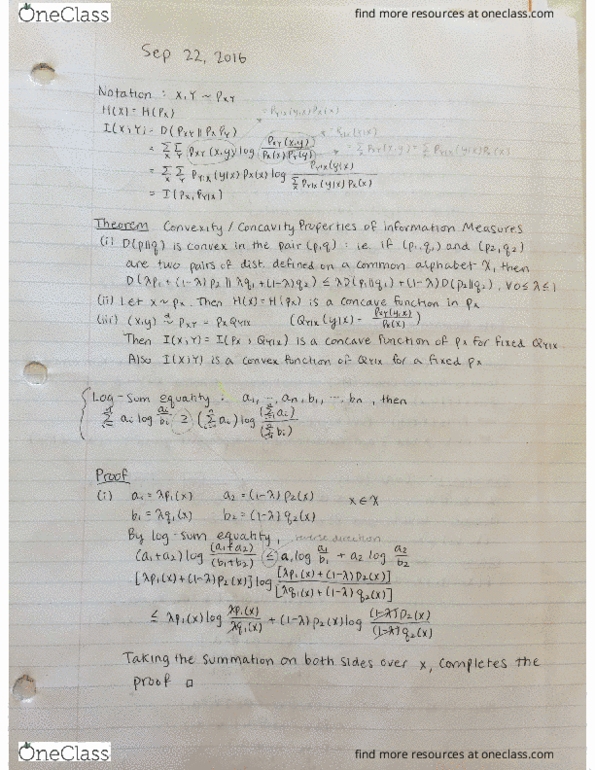 OneClass
find more resources at oneclass.com
Sep 22, 2016
Notation : X,Y ~ P_XY
H(X) = H(P_X)
= P_Y|X(y|x)P_X(x)
I(X;Y) = D(P_XY || P_X P_Y)
= Σ_x Σ_y P_XY(x,y) log P_XY(x,y) / P_X(x)P_Y(y)
= Σ_x P_XY(x,y) = Σ_x P_Y|X(y|x)P_X(x)
= Σ_x Σ_y P_Y|X(y|x) P_X(x) log P_Y|X(y|x) / Σ_x P_Y|X(y|x) P_X(x)
= I(P_X, P_Y|X)
Theorem Convexity / Concavity Properties of information Measures
(i) D(p||q) is convex in the pair (p,q) : i.e. if (p1,q1) and (p2,q2)
are two pairs of dist. defined on a common alphabet X, then
D(λp1 + (1-λ)p2 || λq1 + (1-λ)q2) ≤ λD(p1||q1) + (1-λ)D(p2||q2), ∀0≤λ≤1
(ii) Let X ~ p_X. Then H(X) = H(p_X) is a concave function in p_X
(iii) (X,Y) ~ P_XY = P_X Q_Y|X (Q_Y|X(y|x) - P_XY(y,x) / P_X(x))
Then I(X;Y) = I(P_X; Q_Y|X) is a concave function of p_X for fixed Q_Y|X
Also I(X;Y) is a convex function of Q_Y|X for a fixed p_X
Log-Sum equality : a1, ..., an, b1, ..., bn, then
Σ ai log ai/bi ≥ (Σ ai) log (Σ ai) / (Σ bi)
Proof
(i) a1 = λp1(x) a2 = (1-λ) p2(x) x ∈ X
b1 = λq1(x) b2 = (1-λ) q2(x)
By log-sum equality, reverse direction
(a1+a2) log (a1+a2)/(b1+b2) ≤ a1 log a1/b1 + a2 log a2/b2
[λp1(x) + (1-λ)p2(x)] log [λp1(x) + (1-λ)p2(x)] / [λq1(x) + (1-λ)q2(x)]
≤ λp1(x) log λp1(x)/λq1(x) + (1-λ) p2(x) log (1-λ)p2(x)/(1-λ)q2(x)
Taking the summation on both sides over x, completes the
proof □
OneClass
find more resources at oneclass.com